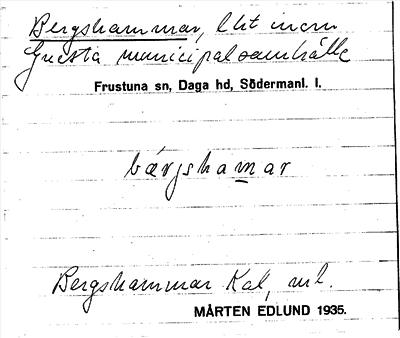 Bergshammar, lht inom
Gnesta municipalsamhälle
Frustuna sn, Daga hd, Södermanl. l.
bärgshamar
Bergshammar Kal, ml.
MÅRTEN EDLUND 1935.